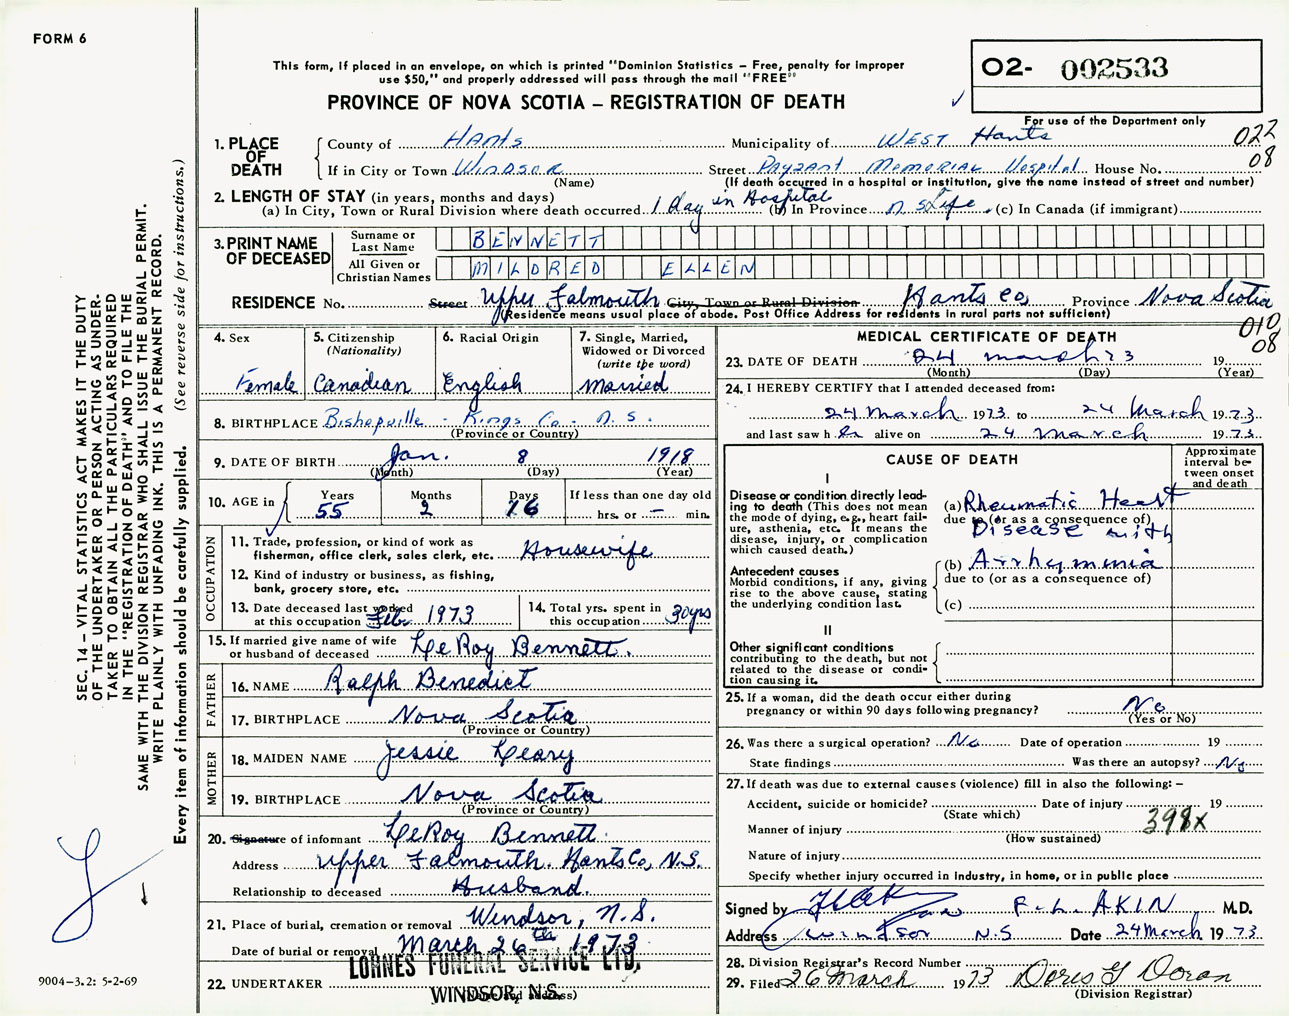 FORM 6
This form, if placed in an envelope, on which is printed "Dominion Statistics – Free, penalty for improper
use $50," and properly addressed will pass through the mail "FREE"
PROVINCE OF NOVA SCOTIA – REGISTRATION OF DEATH
O2- 002533
For use of the Department only
SEC. 14 – VITAL STATISTICS ACT MAKES IT THE DUTY
OF THE UNDERTAKER OR PERSON ACTING AS UNDER-
TAKER TO OBTAIN ALL THE PARTICULARS REQUIRED
IN THE "REGISTRATION OF DEATH" AND TO FILE THE
SAME WITH THE DIVISION REGISTRAR WHO SHALL ISSUE THE BURIAL PERMIT.
WRITE PLAINLY WITH UNFADING INK. THIS IS A PERMANENT RECORD.
Every item of information should be carefully supplied. (See reverse side for instructions.)
1. PLACE OF DEATH
County of Hants Municipality of WEST Hants 022
If in City or Town Windsor Street Payzant Memorial Hospital House No. 08
(Name) (If death occurred in a hospital or institution, give the name instead of street and number)
2. LENGTH OF STAY (in years, months and days)
(a) In City, Town or Rural Division where death occurred 1 day in Hospital (b) In Province N S Life (c) In Canada (if immigrant)
3. PRINT NAME OF DECEASED
Surname or Last Name BENNETT
All Given or Christian Names MILDRED ELLEN
RESIDENCE No. Street Upper Falmouth City, Town or Rural Division Hants Co Province Nova Scotia
(Residence means usual place of abode. Post Office Address for residents in rural parts not sufficient)
010
08
4. Sex Female
5. Citizenship (Nationality) Canadian
6. Racial Origin English
7. Single, Married, Widowed or Divorced (write the word) Married
8. BIRTHPLACE Bishopville - Kings Co. N.S.
(Province or Country)
9. DATE OF BIRTH Jan. 8 1918
(Month) (Day) (Year)
10. AGE in Years 55 Months 2 Days 16 If less than one day old hrs. or – min.
OCCUPATION
11. Trade, profession, or kind of work as fisherman, office clerk, sales clerk, etc. Housewife
12. Kind of industry or business, as fishing, bank, grocery store, etc.
13. Date deceased last worked at this occupation Feb. 1973
14. Total yrs. spent in this occupation 30yrs
15. If married give name of wife or husband of deceased LeRoy Bennett.
FATHER
16. NAME Ralph Benedict
17. BIRTHPLACE Nova Scotia
(Province or Country)
MOTHER
18. MAIDEN NAME Jessie Leary
19. BIRTHPLACE Nova Scotia
(Province or Country)
20. Signature of informant LeRoy Bennett.
Address Upper Falmouth. Hants Co, N.S.
Relationship to deceased Husband.
21. Place of burial, cremation or removal Windsor, N.S.
Date of burial or removal March 26th 1973
22. UNDERTAKER LOHNES FUNERAL SERVICE LTD,
WINDSOR, N.S.
(Name and address)
9004-3.2: 5-2-69
MEDICAL CERTIFICATE OF DEATH
23. DATE OF DEATH 24 March 73 19
(Month) (Day) (Year)
24. I HEREBY CERTIFY that I attended deceased from:
24 March 1973 to 24 March 1973
and last saw her alive on 24 March 1973
CAUSE OF DEATH
Approximate interval between onset and death
I
Disease or condition directly lead-
ing to death (This does not mean
the mode of dying, e.g., heart fail-
ure, asthenia, etc. It means the
disease, injury, or complication
which caused death.)
(a) Rheumatic Heart
due to (or as a consequence of)
Disease with
Antecedent causes
Morbid conditions, if any, giving
rise to the above cause, stating
the underlying condition last.
(b) Arrhymmia
due to (or as a consequence of)
(c)
II
Other significant conditions
contributing to the death, but not
related to the disease or condi-
tion causing it.
25. If a woman, did the death occur either during
pregnancy or within 90 days following pregnancy? No
(Yes or No)
26. Was there a surgical operation? No Date of operation 19
State findings Was there an autopsy? No
27. If death was due to external causes (violence) fill in also the following: –
Accident, suicide or homicide? Date of injury 19
(State which)
Manner of injury 398x
(How sustained)
Nature of injury
Specify whether injury occurred in industry, in home, or in public place
Signed by F. L. AKIN M.D.
Address Windsor N.S Date 24 March 1973.
28. Division Registrar's Record Number
29. Filed 26 March 1973 Doris G Doran
(Division Registrar)